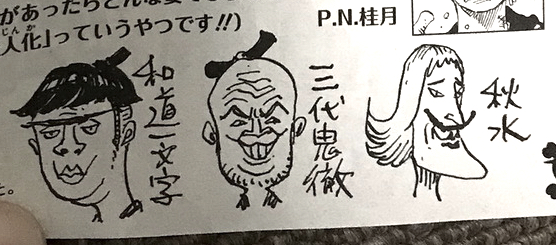 があったらどんな
人化」っていうやつです!!)
P.N.桂月
和道一文字
三代鬼徹
秋水